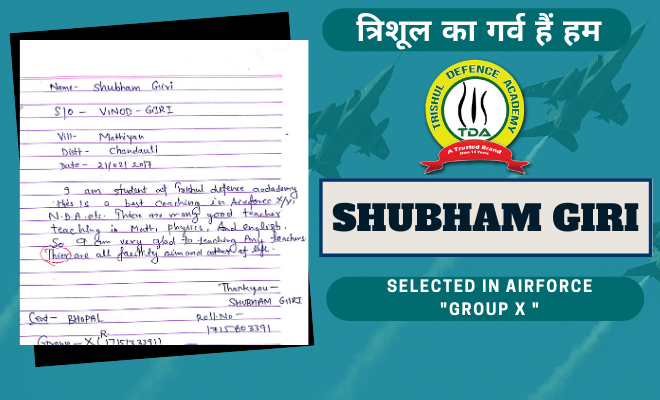 Name- Shubham Girvi
S/O - VINOD - GIRI
Vill- Mathiyan
Distt- Chandauli
Date- 21/02/2017
I am student of Trishul defence acadamy
this is a best coaching in Airforce X/Y,
N.D.A. etc. There are many good teacher
teaching is Math, Physics, And english.
So I am very glad to teaching Any teachers
Thier are all facility aim and other of life.
Thankyou -
SHUBHAM GIIRI
Cent - BHOPAL
Roll.No -
1715803391
Group - X
त्रिशूल का गर्व हैं हम
TRISHUL DEFENCE ACADEMY
TDA
A Trusted Brand
SHUBHAM GIRI
SELECTED IN AIRFORCE
"GROUP X "